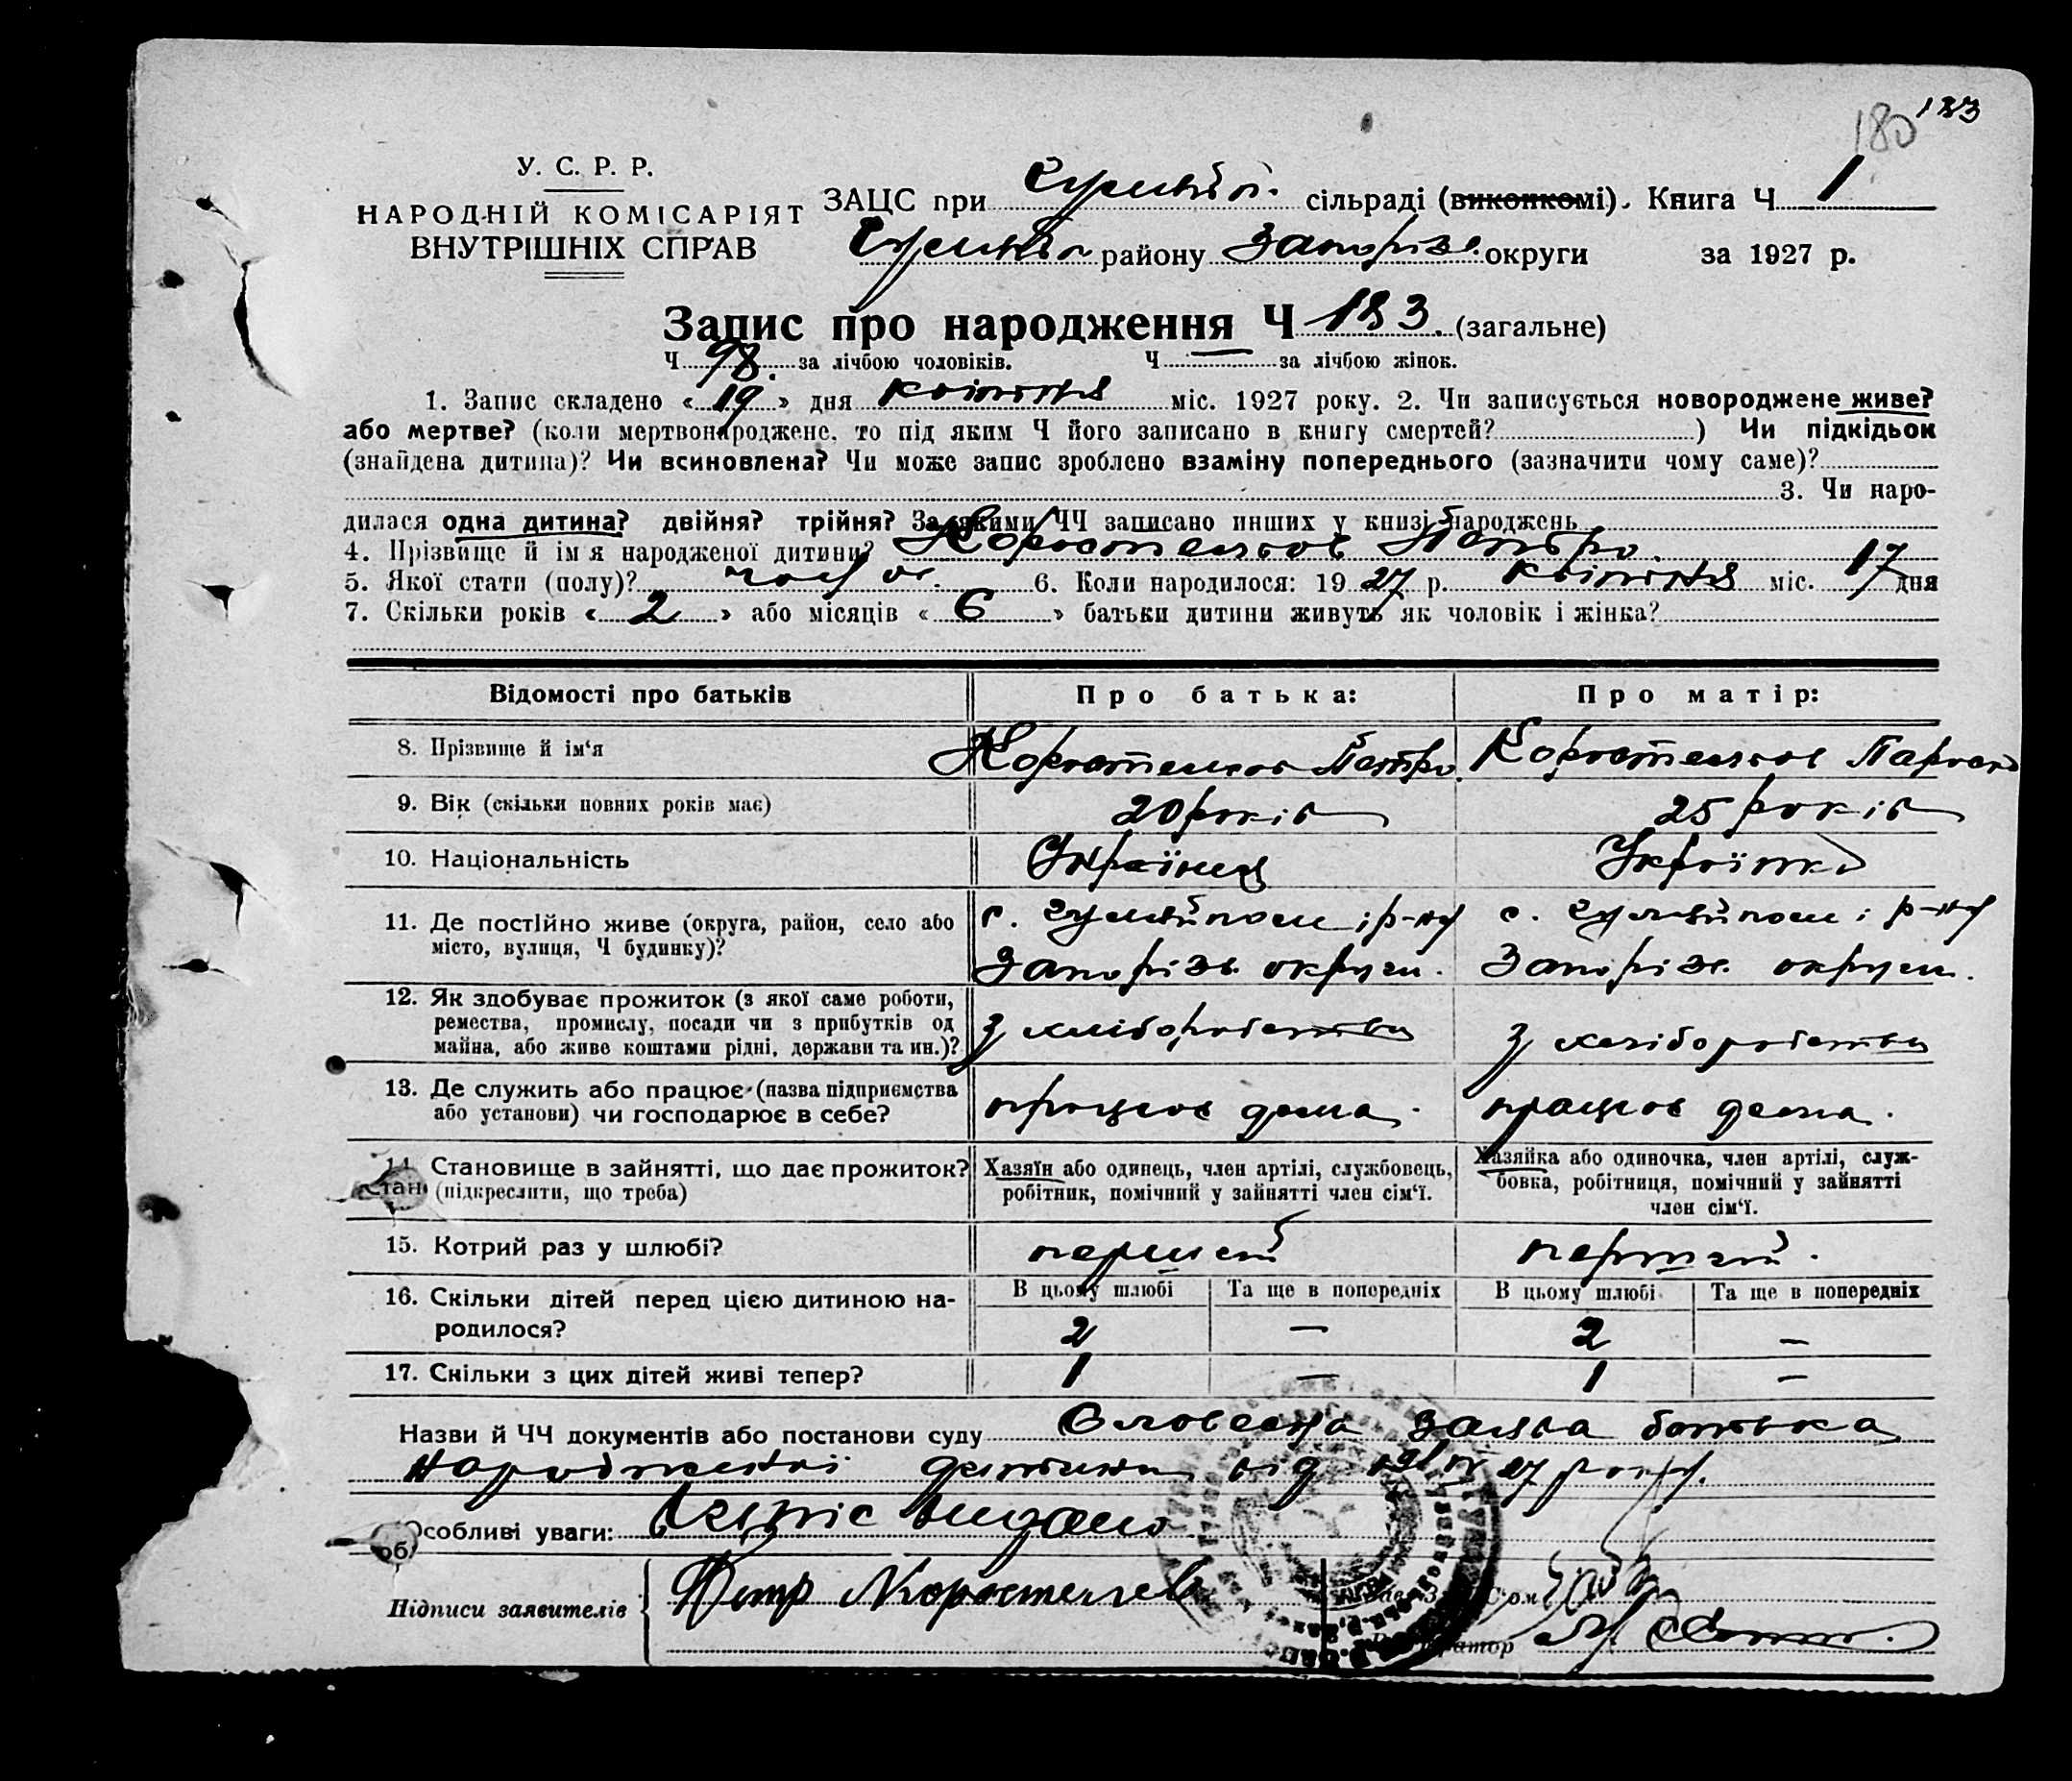 180 183
У. С. Р. Р.
НАРОДНІЙ КОМІСАРІЯТ
ВНУТРІШНІХ СПРАВ
ЗАЦС при сільраді (виконкомі). Книга Ч 1
району Запоріз. округи за 1927 р.
Запис про народження Ч 183. (загальне)
Ч 98. за лічбою чоловіків. Ч — за лічбою жінок.
1. Запис складено « 19 » дня квітня міс. 1927 року. 2. Чи записується новороджене живе?
або мертве? (коли мертвонароджене, то під яким Ч його записано в книгу смертей? ) Чи підкідьок
(знайдена дитина)? Чи всиновлена? Чи може запис зроблено взаміну попереднього (зазначити чому саме)?
3. Чи наро-
дилася одна дитина? двійня? трійня? За якими ЧЧ записано инших у книзі народжень
4. Прізвище й імя народженої дитини? Коростельов Петро.
5. Якої стати (полу)? 6. Коли народилося: 19 27 р. квітня міс. 17 дня
7. Скільки років « 2 » або місяців « 6 » батьки дитини живуть як чоловік і жінка?
Відомості про батьків Про батька: Про матір:
8. Прізвище й ім‘я Коростельов Петро. Коростельов
9. Вік (скільки повних років має) 20 років 25 років
10. Національність Українец Українка
11. Де постійно живе (округа, район, село або
місто, вулиця, Ч будинку)?
с. Гуляйполе і р-ну с. Гуляйполе і р-ну
Запорізь. округи. Запоріз. округи.
12. Як здобуває прожиток (з якої саме роботи,
ремества, промислу, посади чи з прибутків од
майна, або живе коштами рідні, держави та ин.)?
з хліборобства з хліборобства
13. Де служить або працює (назва підприємства
або установи) чи господарює в себе?
працює дома. працює дома.
14. Становище в зайнятті, що дає прожиток?
(підкреслити, що треба)
Хазяїн або одинець, член артілі, службовець,
робітник, помічний у зайнятті член сім‘ї.
Хазяйка або одиночка, член артілі, служ-
бовка, робітниця, помічний у зайнятті
член сім‘ї.
15. Котрий раз у шлюбі? перший перший.
16. Скільки дітей перед цією дитиною на-
родилося?
В цьому шлюбі Та ще в попередніх В цьому шлюбі Та ще в попередніх
2 — 2 —
17. Скільки з цих дітей живі тепер? 1 — 1 —
Назви й ЧЧ документів або постанови суду Словесна заява батька
дитини від 27 року.
Особливі уваги: видано
Підписи заявителів Петр Коростелев